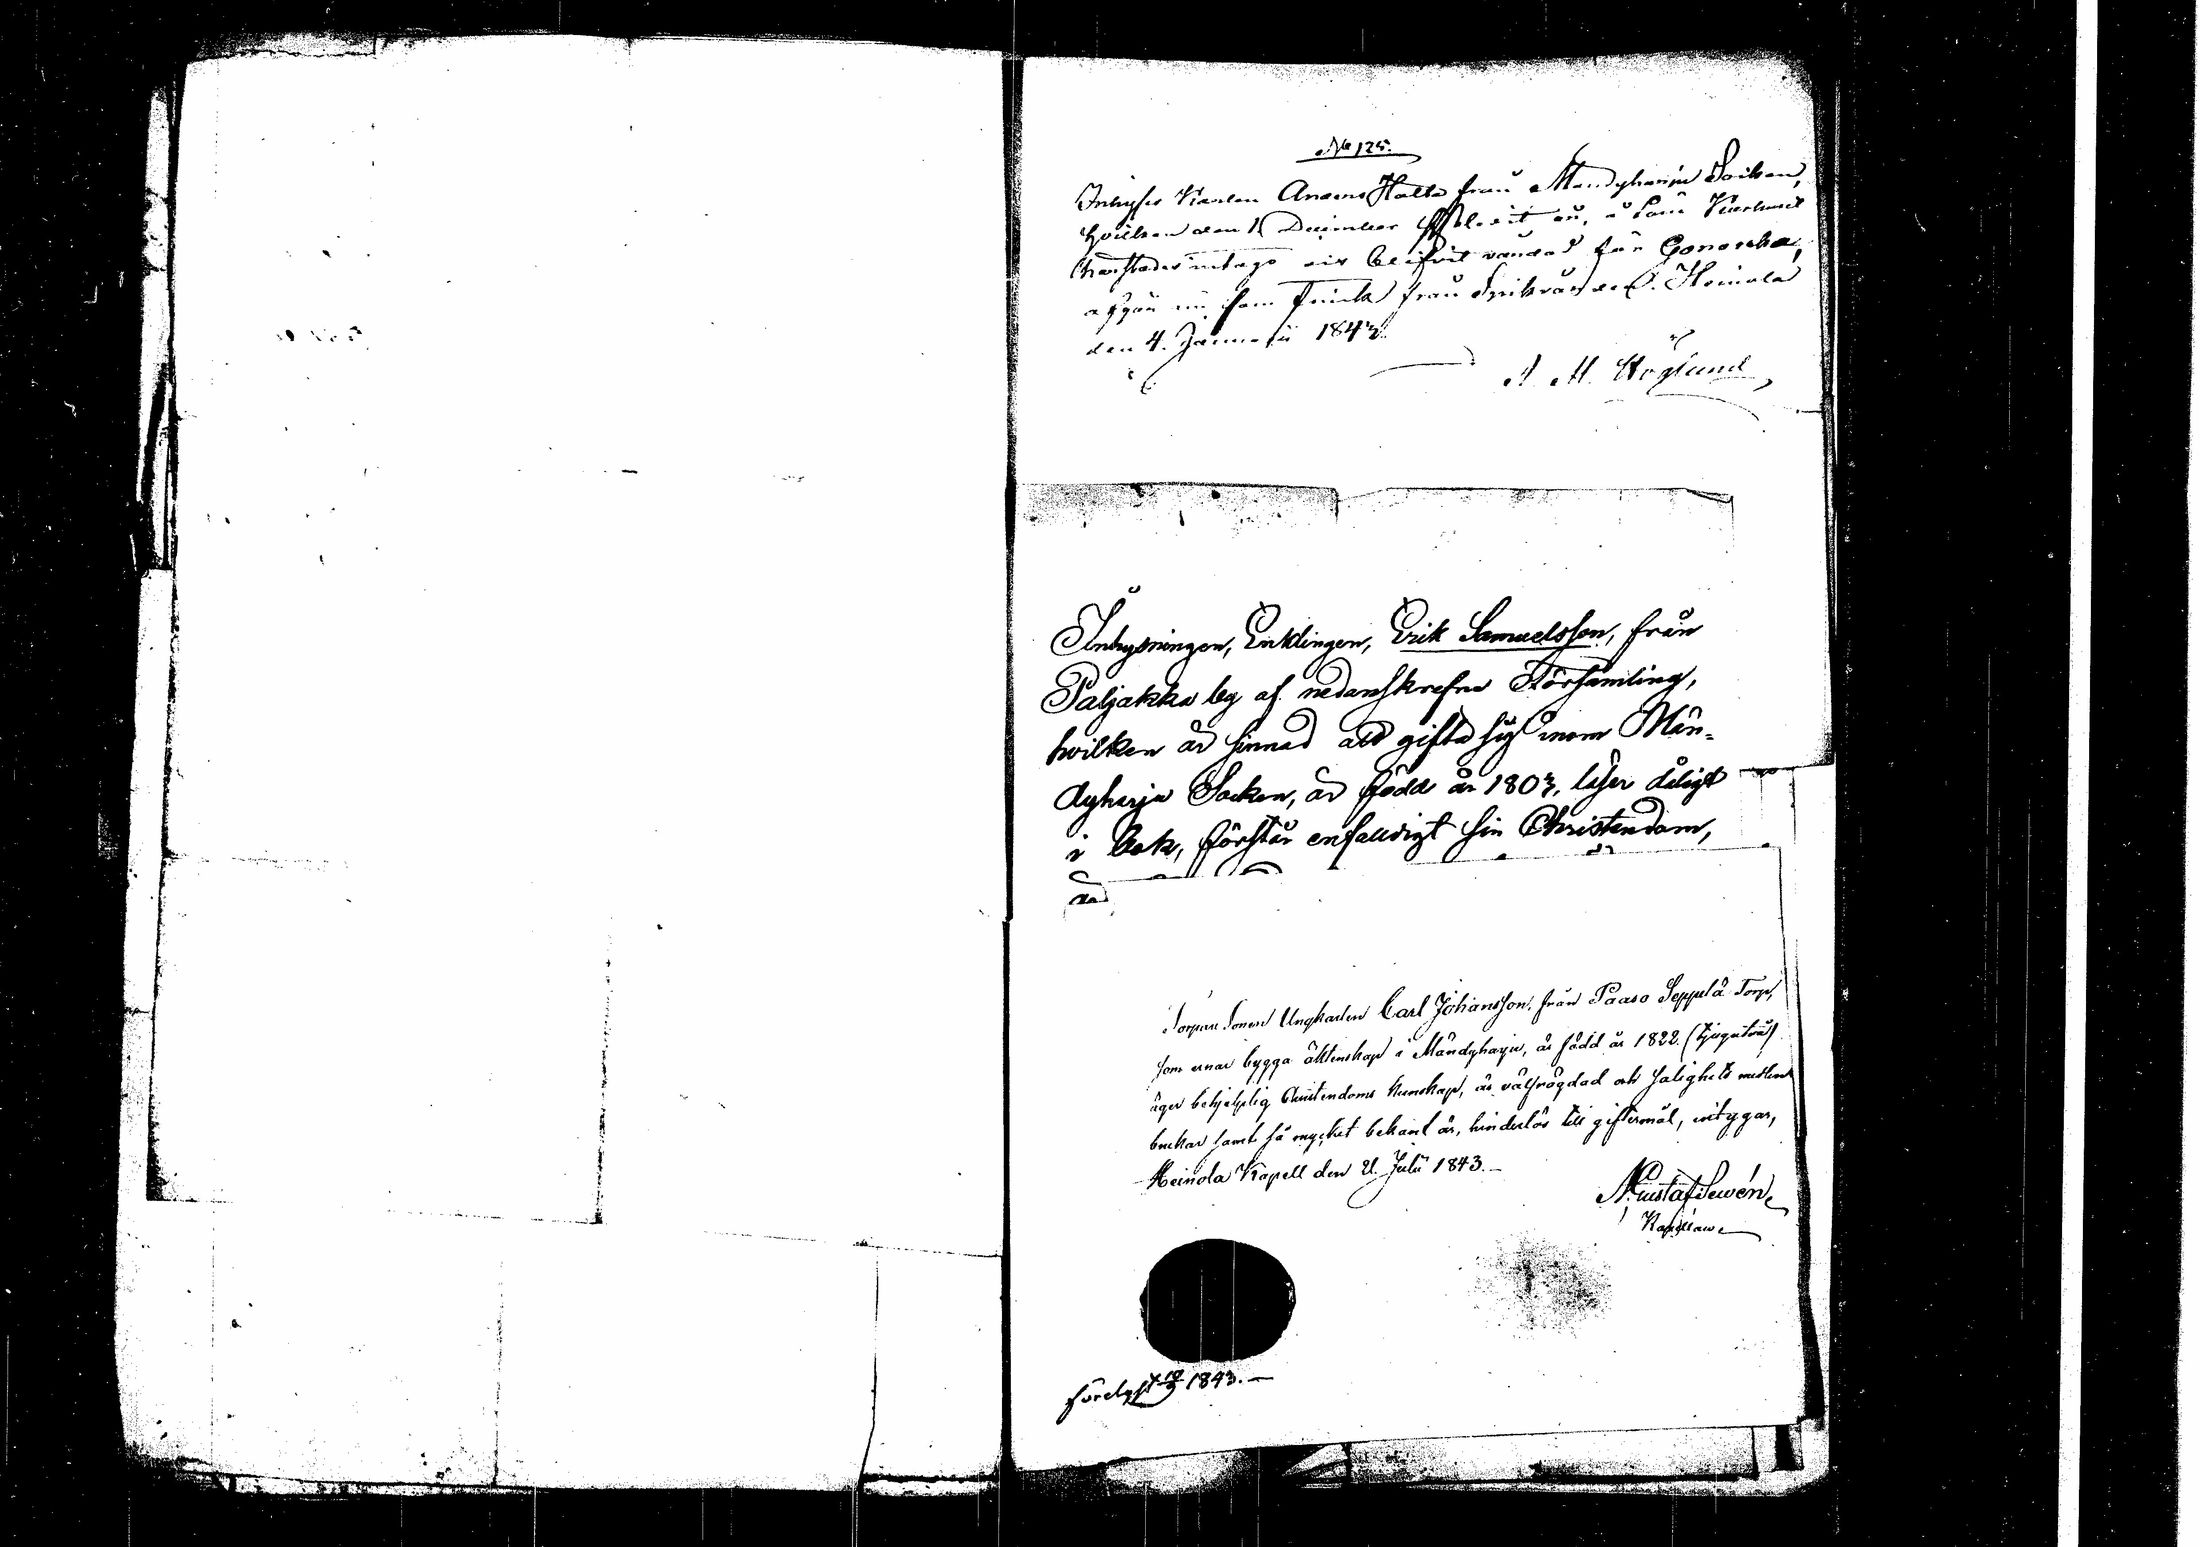 No 125.
Inhyses Karlen Anders Halla från Mändyharju Socken,
hvilken den 1 December
blifvit vårdad för Gonorrhea,
afgår nu som frisk från Heinola
den 4. Januarii 1843.
A. M. Höglund
Inhysningen, Enklingen, Erik Samuelsson, från
Paljakka by af nedanskrefne Församling,
hvilken är sinnad att gifta sig inom Män-
dyharju Socken, är född år 1803, läser dåligt
i Bok, förstår enfaldigt sin Christendom,
Torpare Sonen Ungkarlen Carl Johansson, från Paaso Seppälä Torp,
som ernar bygga äktenskap i Mändyharju, är född år 1822 (tjugutvå)
äger behjelplig Christendoms kunskap, är väl frägdad och salighets medlen
brukar samt så mycket bekant är, hinderlös till giftermål, intygar,
Heinola Kapell den 21. Julii 1843.-
Gustaf Lewén
Kapellan
förelyst 10/9 1843.-